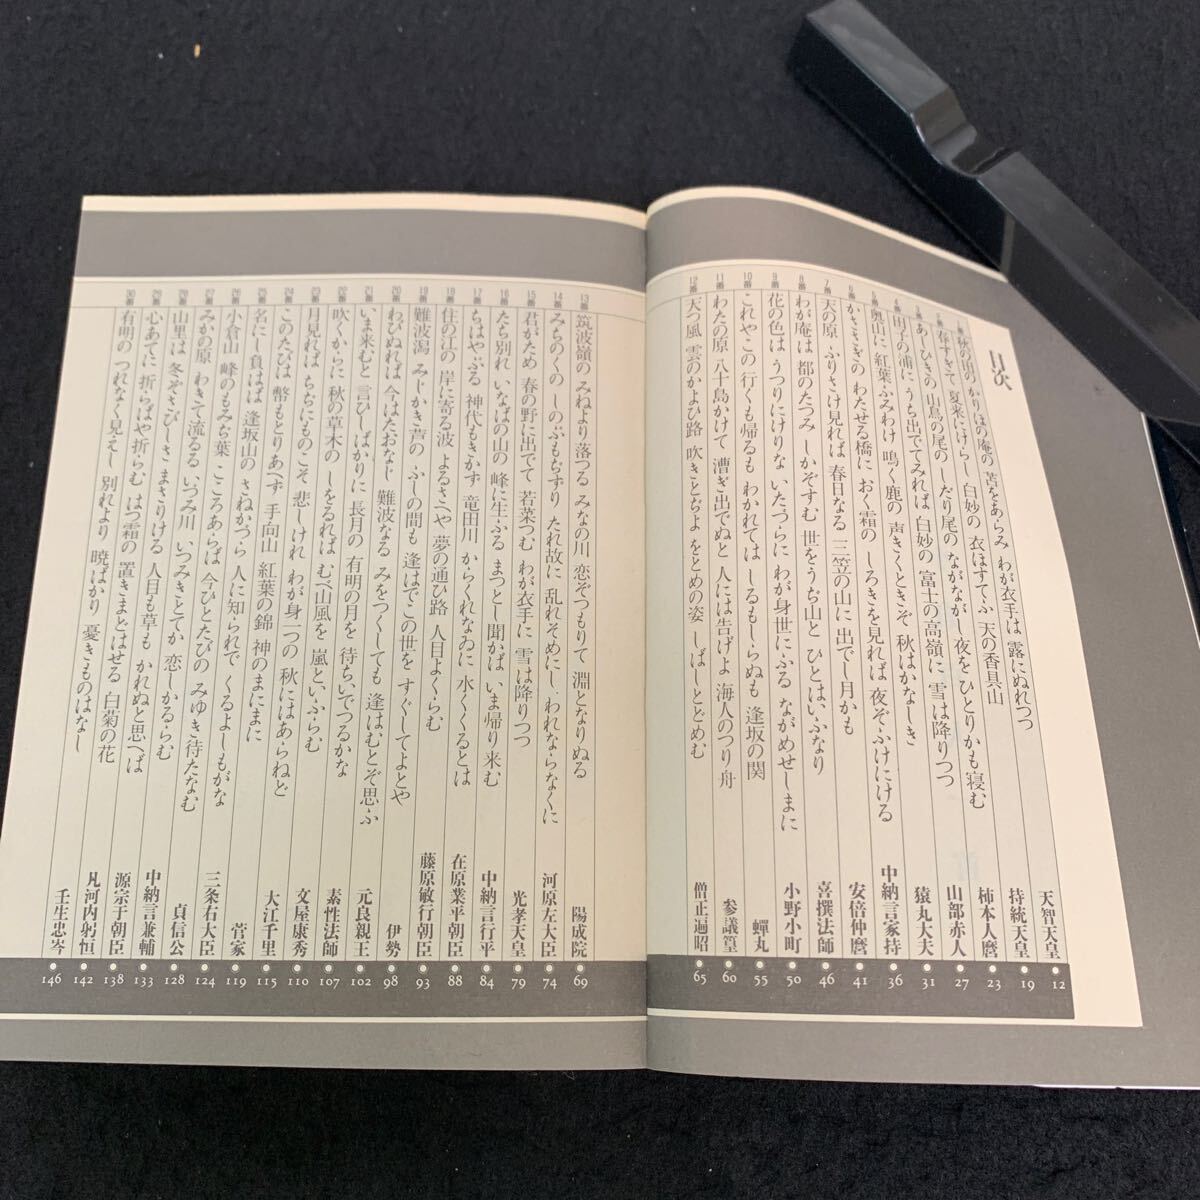 目次
1番 秋の田の かりほの庵の 苫をあらみ わが衣手は 露にぬれつつ 天智天皇 12
2番 春すぎて 夏来にけらし 白妙の 衣ほすてふ 天の香具山 持統天皇 19
3番 あしひきの 山鳥の尾の しだり尾の ながながし夜を ひとりかも寝む 柿本人麿 23
4番 田子の浦に うち出でてみれば 白妙の 富士の高嶺に 雪は降りつつ 山部赤人 27
5番 奥山に 紅葉ふみわけ 鳴く鹿の 声きくときぞ 秋はかなしき 猿丸大夫 31
6番 かささぎの わたせる橋に おく霜の しろきを見れば 夜ぞふけにける 中納言家持 36
7番 天の原 ふりさけ見れば 春日なる 三笠の山に 出でし月かも 安倍仲麿 41
8番 わが庵は 都のたつみ しかぞすむ 世をうぢ山と ひとはいふなり 喜撰法師 46
9番 花の色は うつりにけりな いたづらに わが身世にふる ながめせしまに 小野小町 50
10番 これやこの 行くも帰るも わかれては しるもしらぬも 逢坂の関 蟬丸 55
11番 わたの原 八十島かけて 漕ぎ出でぬと 人には告げよ 海人のつり舟 参議篁 60
12番 天つ風 雲のかよひ路 吹きとぢよ をとめの姿 しばしとどめむ 僧正遍昭 65
13番 筑波嶺の みねより落つる みなの川 恋ぞつもりて 淵となりぬる 陽成院 69
14番 みちのくの しのぶもぢずり たれ故に 乱れそめにし われならなくに 河原左大臣 74
15番 君がため 春の野に出でて 若菜つむ わが衣手に 雪は降りつつ 光孝天皇 79
16番 たち別れ いなばの山の 峰に生ふる まつとし聞かば いま帰り来む 中納言行平 84
17番 ちはやぶる 神代もきかず 竜田川 からくれなゐに 水くくるとは 在原業平朝臣 88
18番 住の江の 岸に寄る波 よるさへや 夢の通ひ路 人目よくらむ 藤原敏行朝臣 93
19番 難波潟 みじかき芦の ふしの間も 逢はでこの世を すぐしてよとや 伊勢 98
20番 わびぬれば 今はたおなじ 難波なる みをつくしても 逢はむとぞ思ふ 元良親王 102
21番 いま来むと 言ひしばかりに 長月の 有明の月を 待ちいでつるかな 素性法師 107
22番 吹くからに 秋の草木の しをるれば むべ山風を 嵐といふらむ 文屋康秀 110
23番 月見れば ちぢにものこそ 悲しけれ わが身一つの 秋にはあらねど 大江千里 115
24番 このたびは 幣もとりあへず 手向山 紅葉の錦 神のまにまに 菅家 119
25番 名にし負はば 逢坂山の さねかづら 人に知られで くるよしもがな 三条右大臣 124
26番 小倉山 峰のもみぢ葉 こころあらば 今ひとたびの みゆき待たなむ 貞信公 128
27番 みかの原 わきて流るる いづみ川 いつみきとてか 恋しかるらむ 中納言兼輔 133
28番 山里は 冬ぞさびしさ まさりける 人目も草も かれぬと思へば 源宗于朝臣 138
29番 心あてに 折らばや折らむ はつ霜の 置きまどはせる 白菊の花 凡河内躬恒 142
30番 有明の つれなく見えし 別れより 暁ばかり 憂きものはなし 壬生忠岑 146